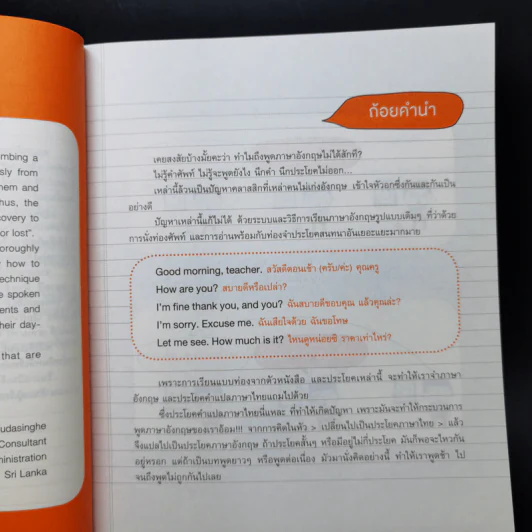 mbing a
sly from
hem and
hus, the
covery to
or lost".
oroughly
how to
echnique
e spoken
ents and
heir day-
that are
udasinghe
Consultant
ministration
Sri Lanka
ถ้อยคำนำ
เคยสงสัยบ้างมั้ยคะว่า ทำไมถึงพูดภาษาอังกฤษไม่ได้สักที?
ไม่รู้คำศัพท์ ไม่รู้จะพูดยังไง นึกคำ นึกประโยคไม่ออก...
เหล่านี้ล้วนเป็นปัญหาคลาสสิกที่เหล่าคนไม่เก่งอังกฤษ เข้าใจหัวอกซึ่งกันและกันเป็น
อย่างดี
ปัญหาเหล่านี้แก้ไม่ได้ ด้วยระบบและวิธีการเรียนภาษาอังกฤษรูปแบบเดิมๆ ที่ว่าด้วย
การนั่งท่องศัพท์ และการอ่านพร้อมกับท่องจำประโยคสนทนาอันเยอะแยะมากมาย
Good morning, teacher. สวัสดีตอนเช้า (ครับ/ค่ะ) คุณครู
How are you? สบายดีหรือเปล่า?
I'm fine thank you, and you? ฉันสบายดีขอบคุณ แล้วคุณล่ะ?
I'm sorry. Excuse me. ฉันเสียใจด้วย ฉันขอโทษ
Let me see. How much is it? ไหนดูหน่อยซิ ราคาเท่าไหร่?
เพราะการเรียนแบบท่องจากตัวหนังสือ และประโยคเหล่านี้ จะทำให้เราจำภาษา
อังกฤษ และประโยคคำแปลภาษาไทยแถมไปด้วย
ซึ่งประโยคคำแปลภาษาไทยนี่แหละ ที่ทำให้เกิดปัญหา เพราะมันจะทำให้กระบวนการ
พูดภาษาอังกฤษของเราอ้อม!!! จากการคิดในหัว > เปลี่ยนไปเป็นประโยคภาษาไทย > แล้ว
จึงแปลไปเป็นประโยคภาษาอังกฤษ ถ้าประโยคสั้นๆ หรือมีอยู่ไม่กี่ประโยค มันก็พอจะไหวกัน
อยู่หรอก แต่ถ้าเป็นบทพูดยาวๆ หรือพูดต่อเนื่อง มัวมานั่งคิดอย่างนี้ ทำให้เราพูดช้า ไป
จนถึงพูดไม่ถูกกันไปเลย